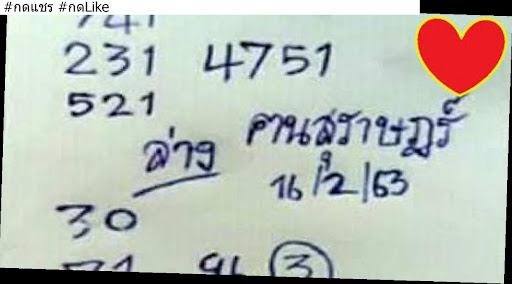 #กดแชร #กดLike
741
231 4751
521
ล่าง คนสุราษฎร์
16/2/63
30
3